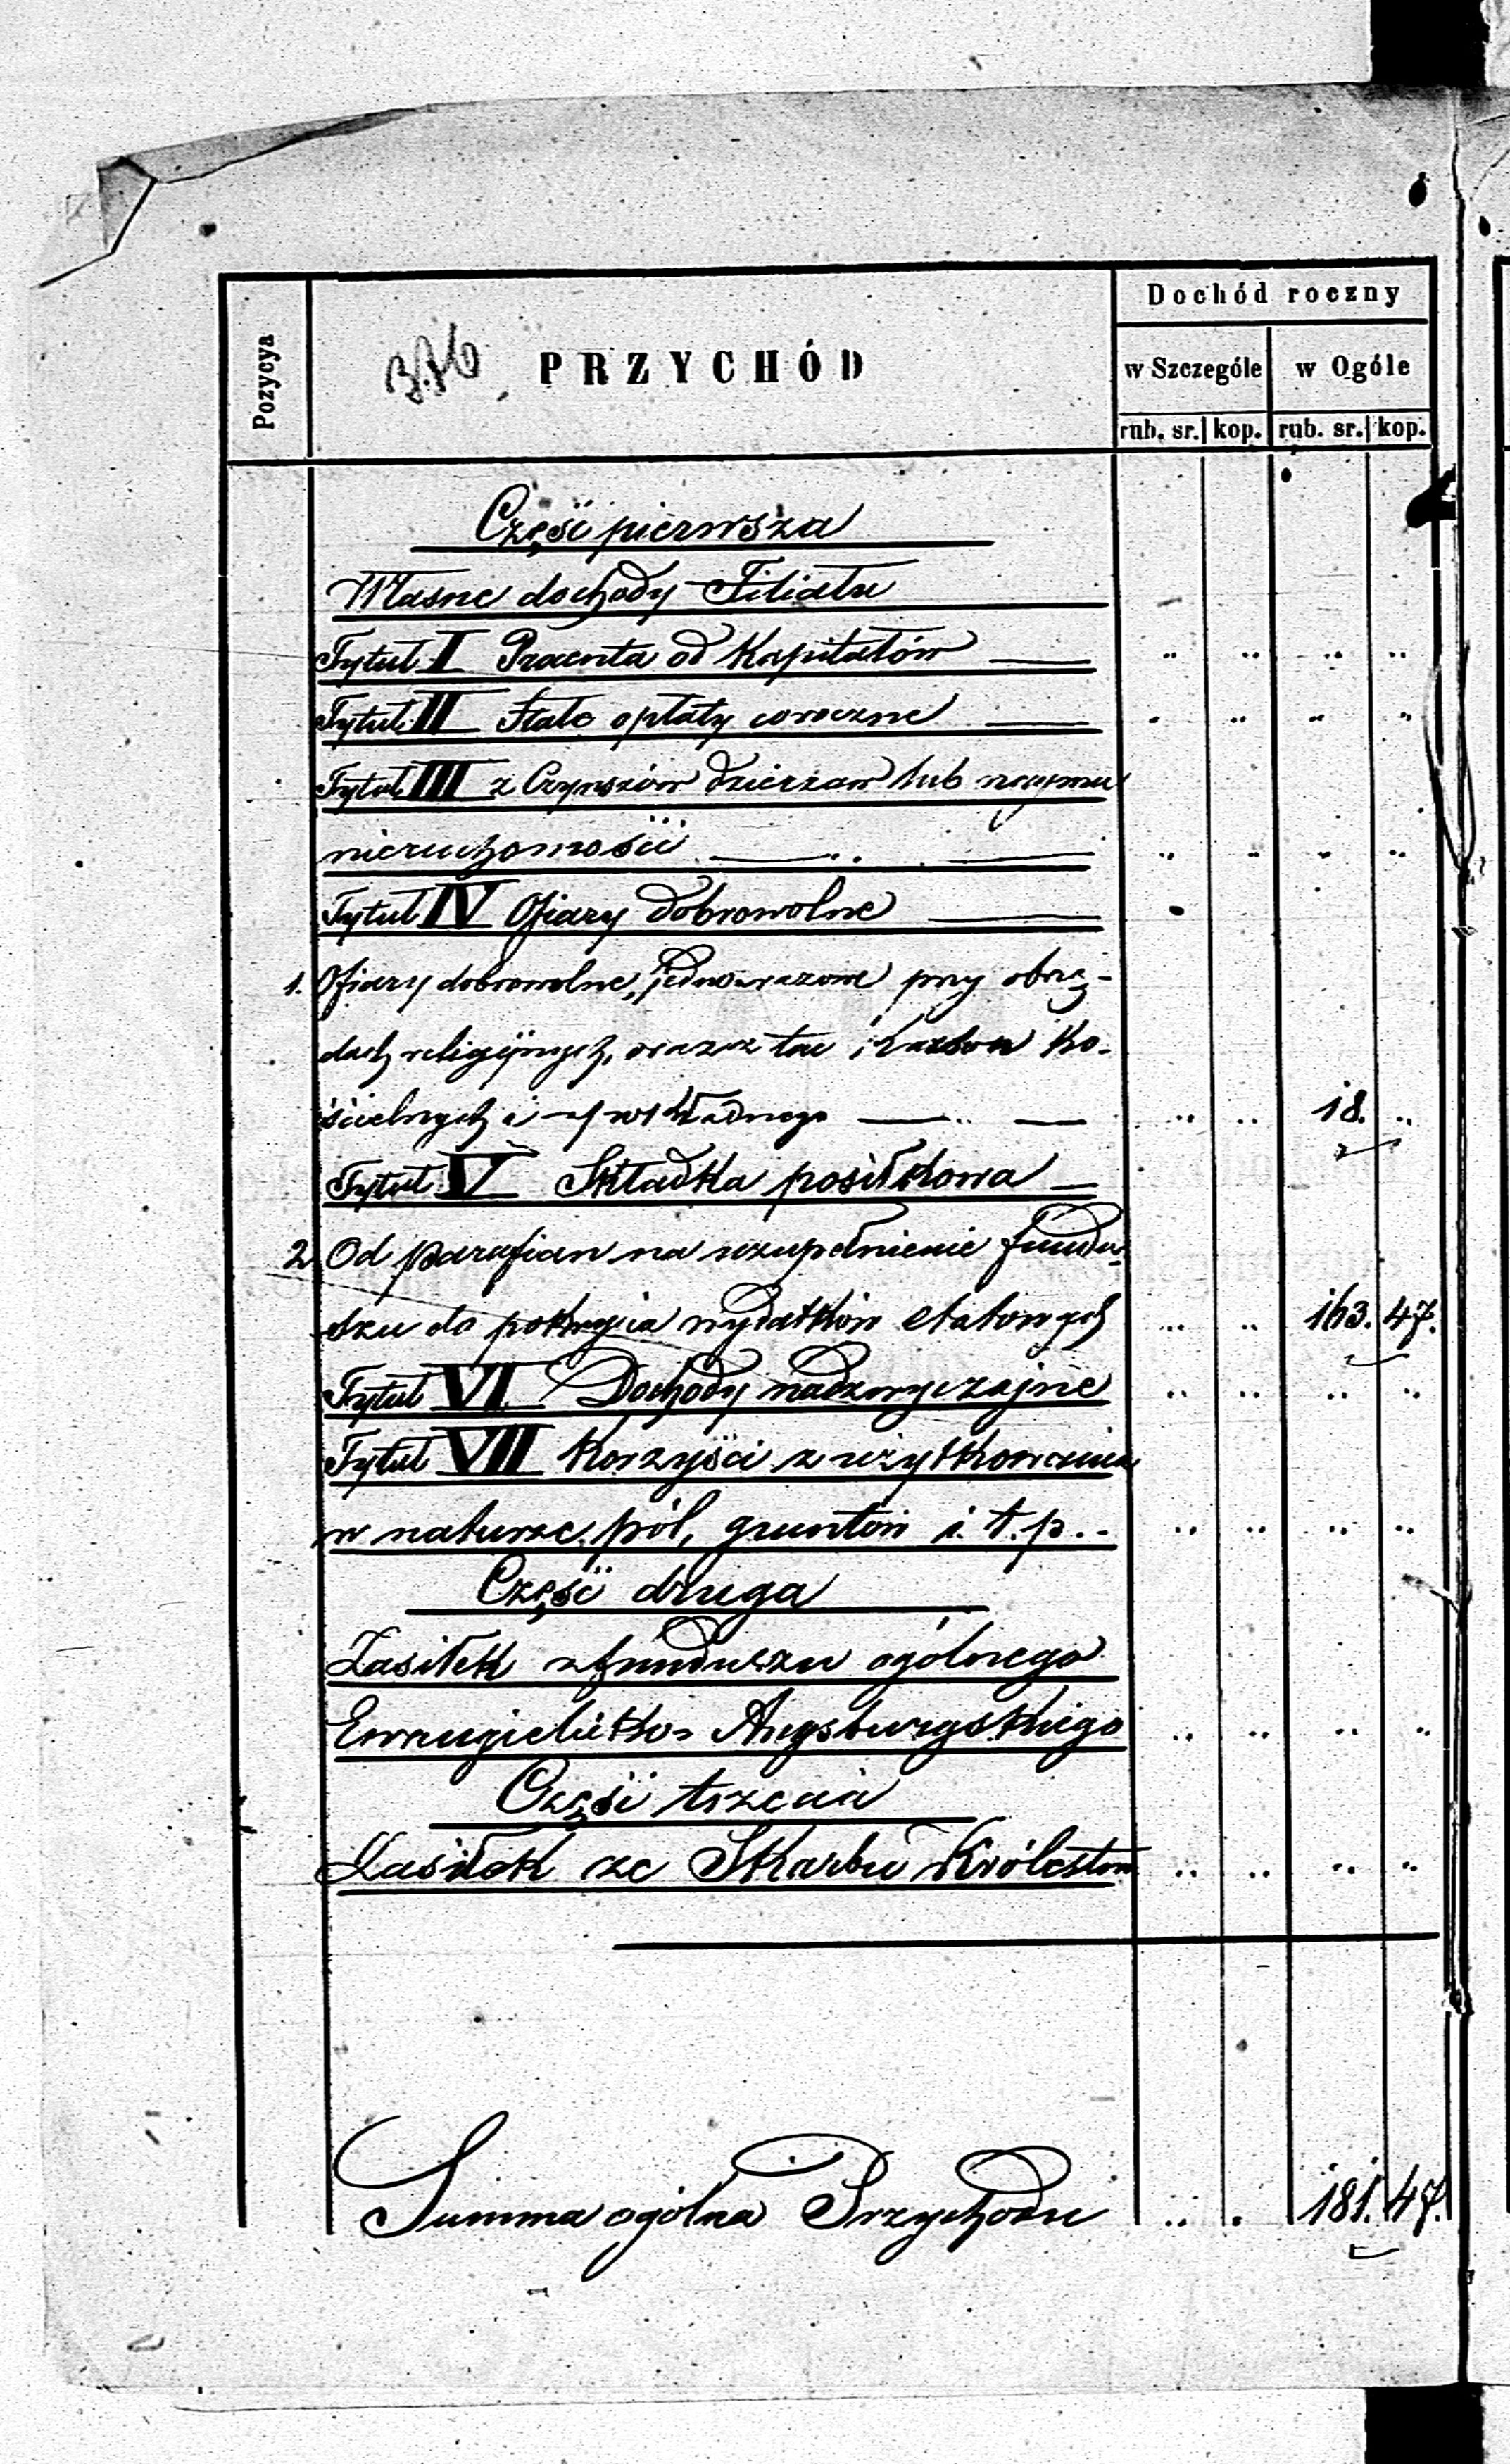 Dochód roczny
Pozycya
PRZYCHÓD
w Szczególe w Ogóle
rub. sr. kop. rub. sr. kop.
Część pierwsza
Własne dochody Filiału
Tytuł I Procenta od Kapitałów — .. .. .. ..
Tytuł II Stałe opłaty coroczne — .. .. .. ..
Tytuł III z Czynszów dzierżaw lub najmu
nieruchomości — .. .. .. ..
Tytuł IV Ofiary dobrowolne —
1. Ofiary dobrowolne, jednorazowe przy obrzę-
dach religijnych, oraz z tac i Karbon Ko-
ścielnych i — .. .. 18. ..
Tytuł V Składka posiłkowa —
2 Od parafian na uzupełnienie fundu-
szu do pokrycia wydatków etatowych .. .. 163. 47.
Tytuł VI Dochody nadzwyczajne .. .. .. ..
Tytuł VII Korzyści z użytkowania
w naturze pól, gruntów i. t. p. - .. .. .. ..
Część druga
Zasiłek z funduszu ogólnego
Ewangielicko Augsburgskiego .. .. .. ..
Część trzecia
Zasiłek ze Skarbu Królestwa .. .. .. ..
Summa ogólna Przychodu .. . 181. 47.